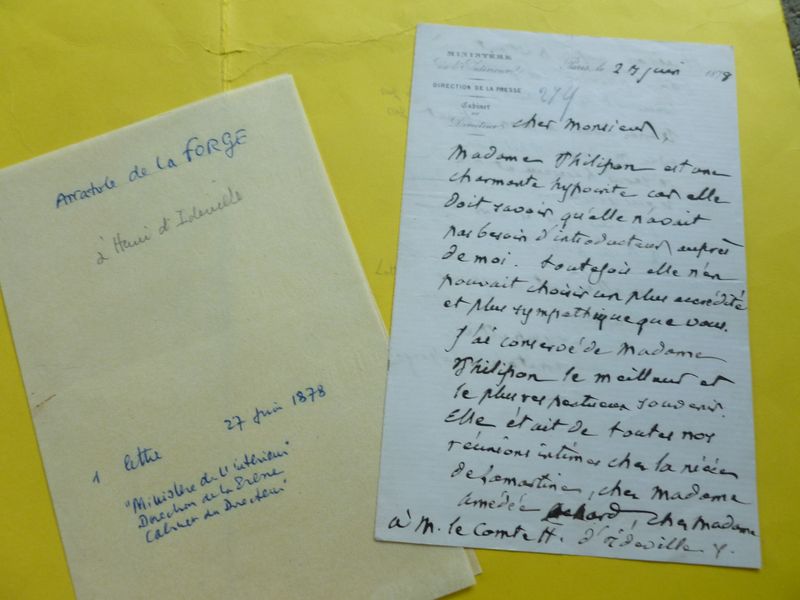 Anatole de la FORGE
à Henri d'Ideville
1 lettre 27 Juin 1878
"Ministère de l'intérieur"
Direction de la Presse
Cabinet du Directeur"
MINISTÈRE
de l'Intérieur
DIRECTION DE LA PRESSE
Cabinet
du
Directeur
Paris, le 27 juin 1878
274
cher Monsieur,
Madame Philipon est une
charmante hypocrite car elle
doit savoir qu'elle n'avait
pas besoin d'introducteur auprès
de moi. toutefois elle n'en
pouvait choisir un plus accrédité
et plus sympathique que vous.
J'ai conservé de Madame
Philipon le meilleur et
le plus respectueux souvenir.
Elle était de toutes nos
réunions intimes chez la nièce
de Lamartine, chez Madame
amédée achard, chez Madame
à M. le Comte H. d'ideville